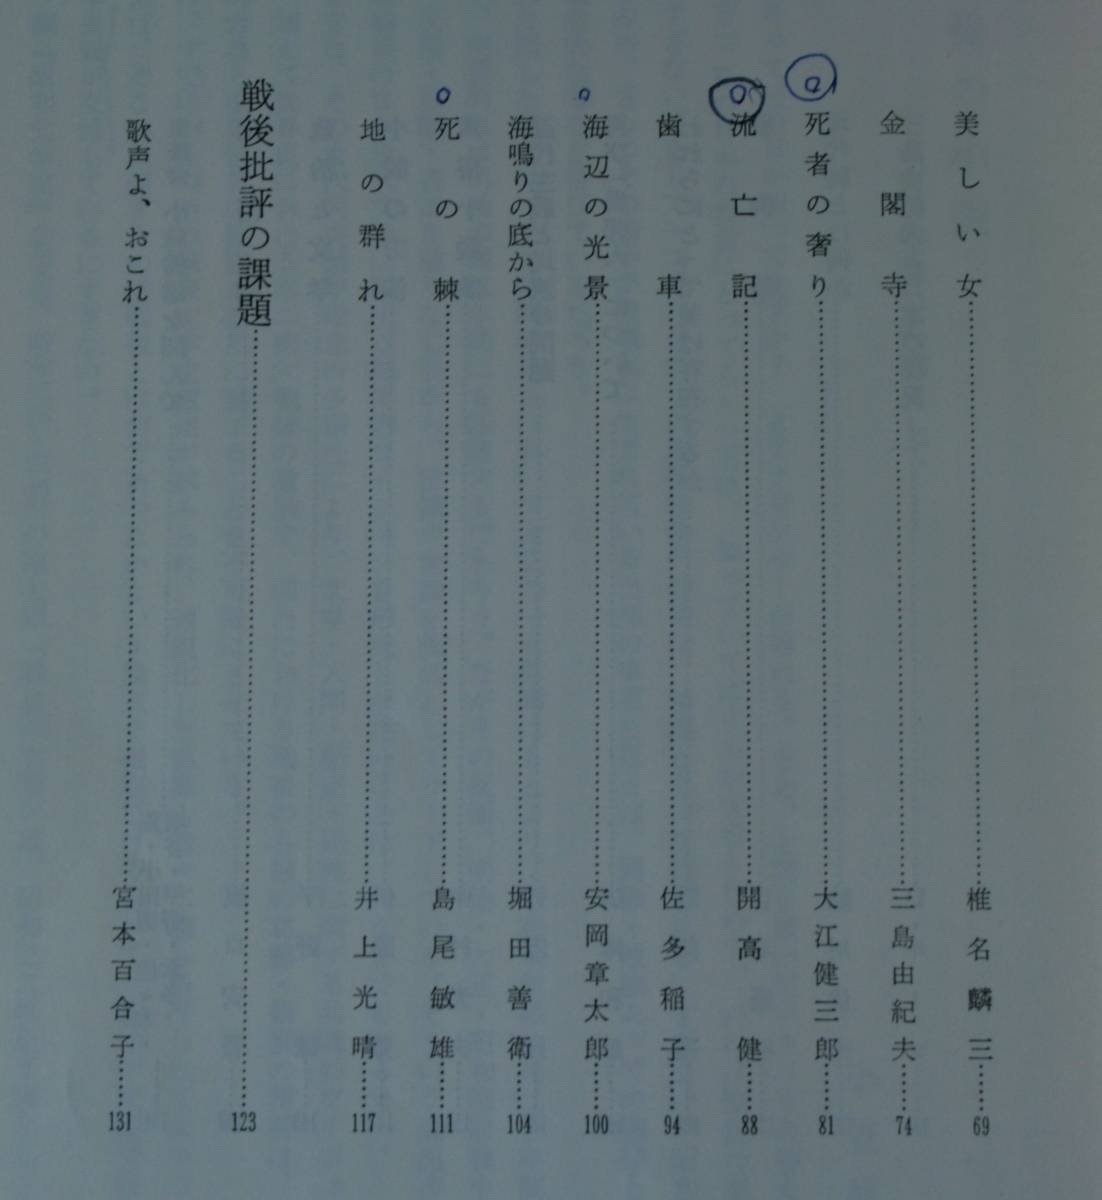 美しい女……椎名麟三……69
金閣寺……三島由紀夫……74
死者の奢り……大江健三郎……81
流亡記……開高健……88
歯車……佐多稲子……94
海辺の光景……安岡章太郎……100
海鳴りの底から……堀田善衛……104
死の棘……島尾敏雄……111
地の群れ……井上光晴……117
戦後批評の課題……123
歌声よ、おこれ……宮本百合子……131